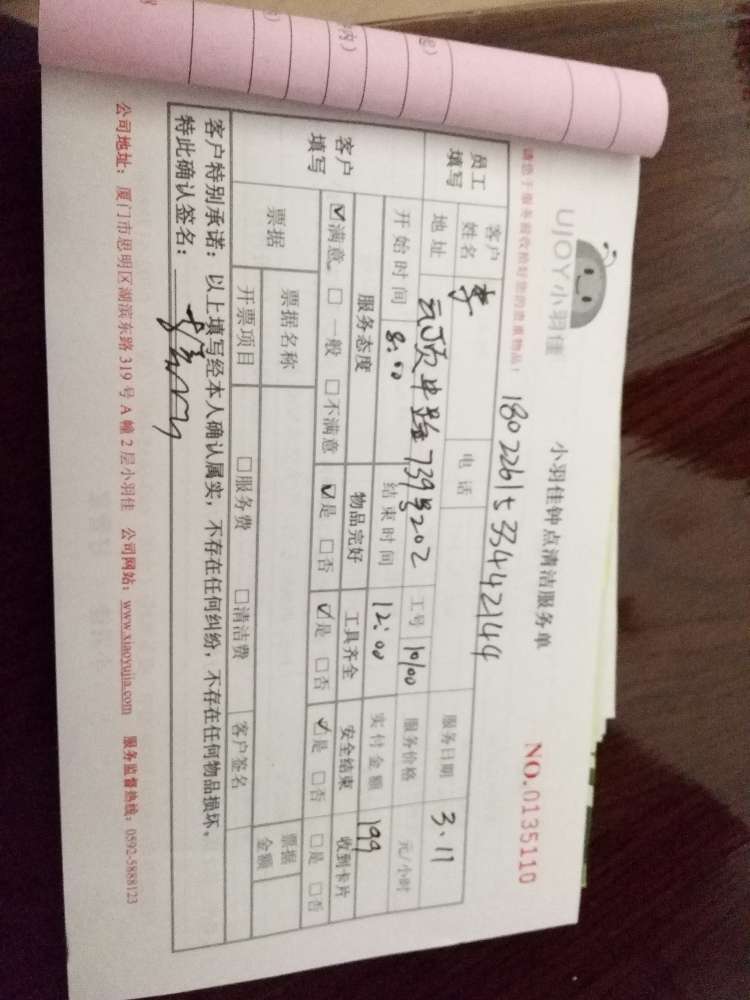 UJOY小羽佳
小羽佳钟点清洁服务单
NO.0135110
请您于服务前收拾好您的贵重物品！
18022615334442144
员工填写 客户姓名 李 电话 服务日期 3.11
地址 739号202 工号 10100 服务价格 元/小时
开始时间 8:00 结束时间 12:00 实付金额 199
客户填写 服务态度 物品完好 工具齐全 安全结束 收到卡片
☑满意 □一般 □不满意 ☑是 □否 ☑是 □否 ☑是 □否 □是 □否
票据 票据名称 票据金额
开票项目 □服务费 □清洁费 客户签名
客户特别承诺：以上填写经本人确认属实，不存在任何纠纷，不存在任何物品损坏。
特此确认签名：
公司地址：厦门市思明区湖滨东路319号A幢2层小羽佳 公司网站：www.xiaoyujia.com 服务监督热线：0592-5888123